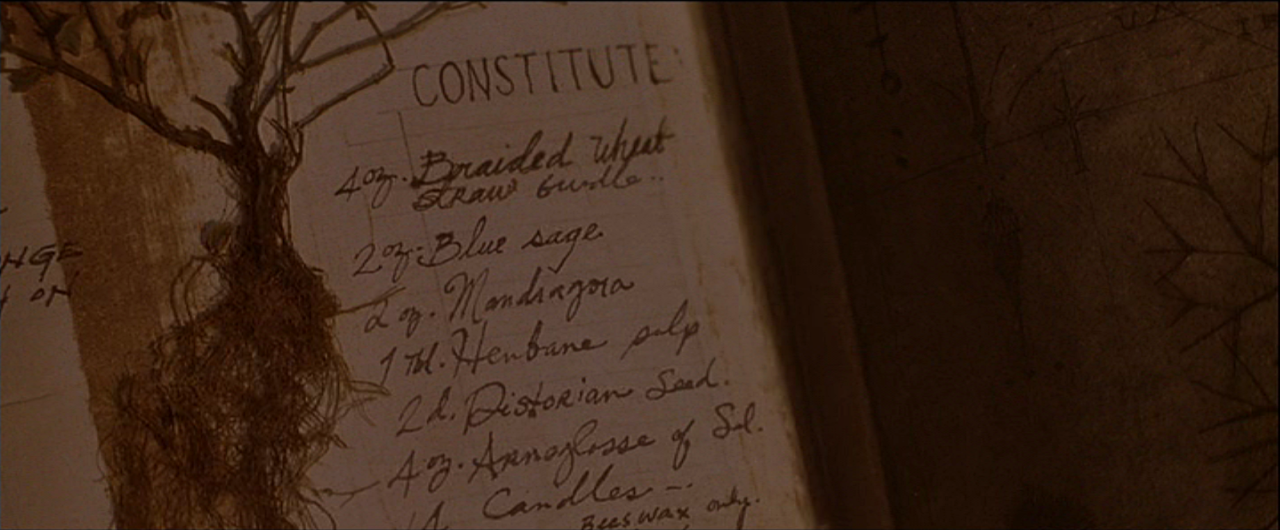 CONSTITUTE
4oz. Braided Wheat
straw bundle..
2oz. Blue sage
2 oz. Mandragora
1 Tbl. Henbane
2d. Distorian Seed.
4oz. Arnoglosse of Sol.
Candles --
Beeswax only.